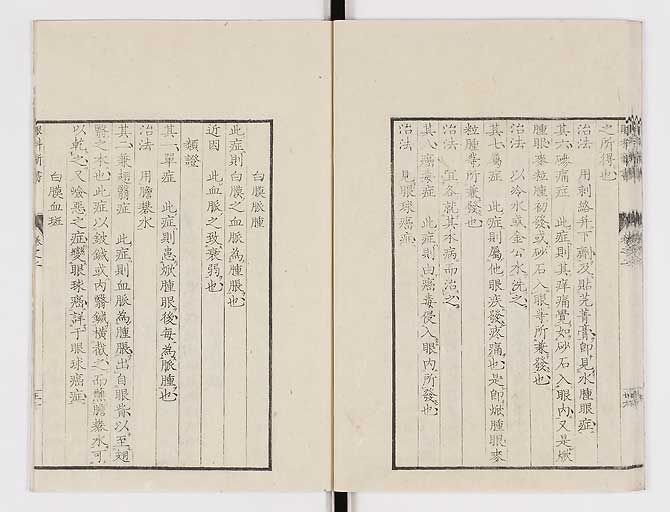 之所得也
治法 用刺絡并下劑及貼芫菁膏即見水腫眼症
其六磣痛症 此症則其痒痛覺如砂石入眼內又是焮
腫眼麥粒腫初發或砂石入眼等所兼發也
治法 以冷水或金公水洗之
其七屬症 此症則屬他眼疾發疼痛也是即焮腫眼麥
粒腫等所兼發也
治法 宜各就其本病而治之
其八癌毒症 此症則由癌毒侵入眼內所發也
治法 見眼球癌症
白膜脈腫
此症則白膜之血脈為腫脹也
近因 此血脈之致衰弱也
類證
其一單症 此症則患焮腫眼後每為脈腫也
治法 用膽礬水
其二兼翅翳症 此症則血脈為腫脹出自眼眥以至翅
翳之本也此症以鈹鍼或內翳鍼橫截之而蘸膽礬水可
以乾之又嶮惡之症變眼球癌詳于眼球癌症
白膜血斑
眼科新書
卷之